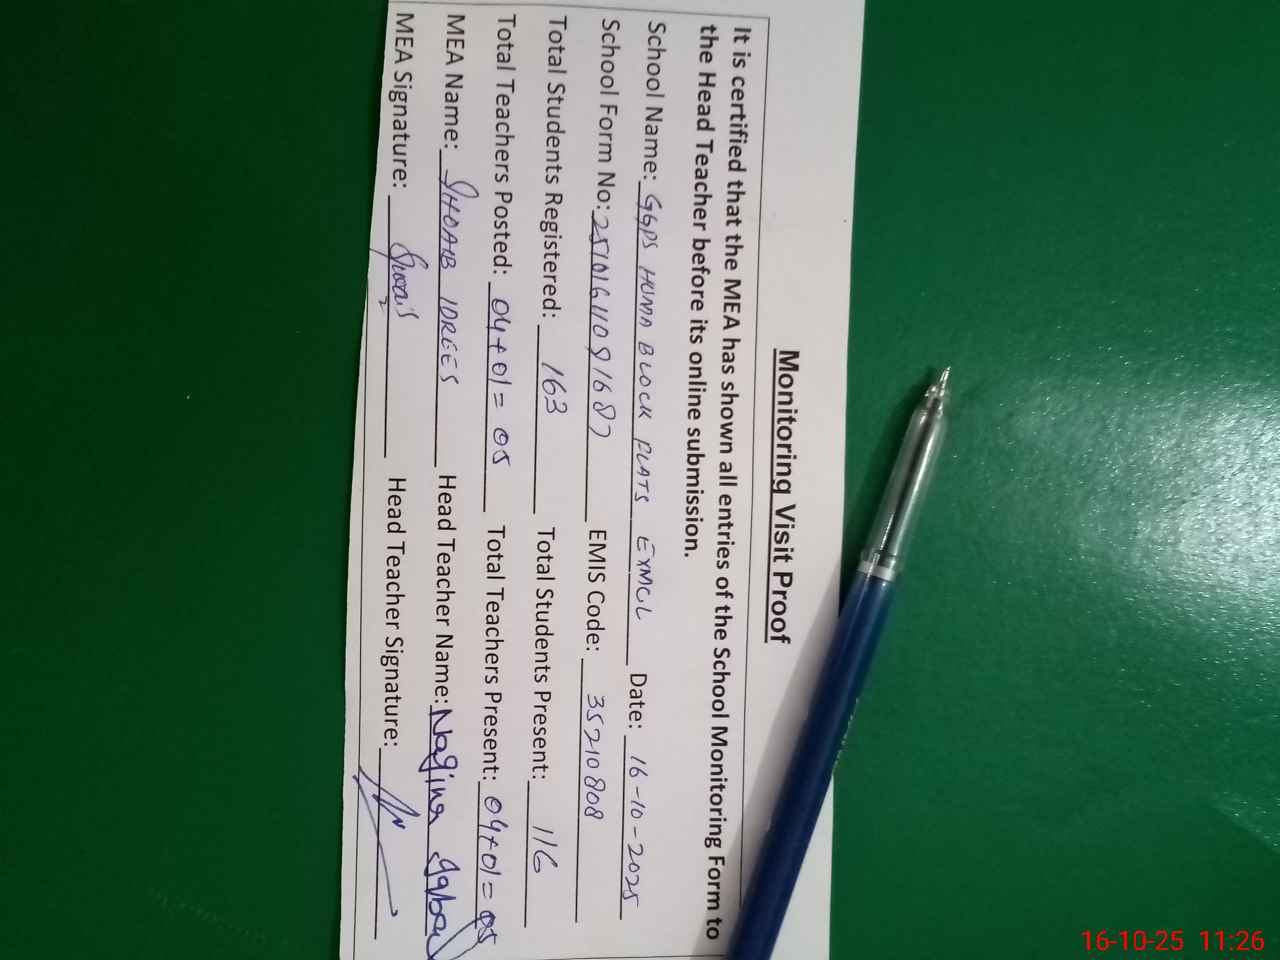 Monitoring Visit Proof
It is certified that the MEA has shown all entries of the School Monitoring Form to
the Head Teacher before its online submission.
School Name: GGPS HUMA BLOCK PLATS EXMCL Date: 16-10-2025
School Form No: EMIS Code: 35210808
Total Students Registered: 163 Total Students Present: 116
Total Teachers Posted: 04+01=05 Total Teachers Present: 04+01=05
MEA Name: SHOAIB IDREES Head Teacher Name: Nagina Iqbal
MEA Signature: Head Teacher Signature:
16-10-25 11:26